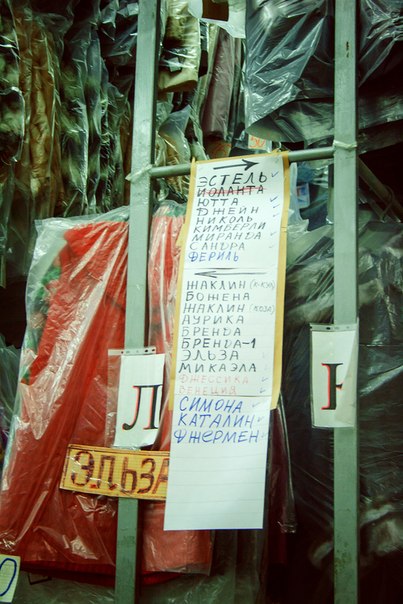 ЭСТЕЛЬ
ИОЛАНТА
ЮТТА
ДЖЕИН
НИКОЛЬ
КИМБЕРЛИ
МИРАНДА
САНДРА
ФЕРИЛЬ
ЖАКЛИН (К-КУЛ)
БОЖЕНА
ЖАКЛИН (КОЗА)
АУРИКА
БРЕНДА
БРЕНДА-1
ЭЛЬЗА
МИКАЭЛА
ДЖЕССИКА
ВЕНЕЦИЯ
СИМОНА
КАТАЛИН
ДЖЕРМЕН
Л
ЭЛЬЗА